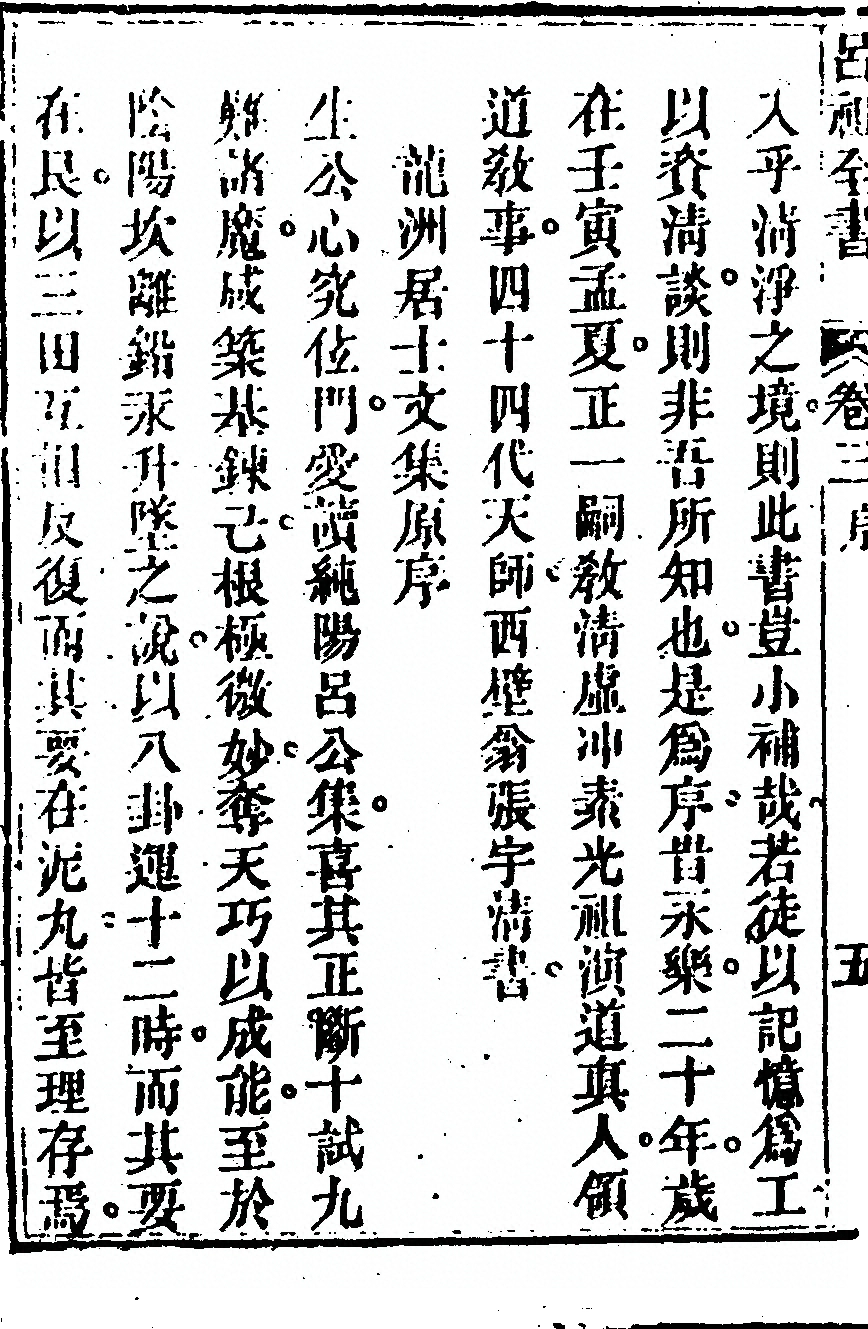 呂祖全書 卷三 序 五
入乎清淨之境。則此書豈小補哉。若徒以記憶爲工
以資清談。則非吾所知也。是爲序。昔永樂。二十年。歲
在壬寅孟夏。正一嗣教清虛冲素光祖演道真人。領
道教事。四十四代天師。西壁翁張宇清書。
龍洲居士文集原序
生公心究佐門。愛讀純陽呂公集。喜其正斷十試九
難諸魔。成築基鍊己。根極微妙。奪天巧以成能。至於
陰陽坎離鉛汞升墜之說。以八卦運十二時。而其要
在艮。以三田互相反復。而其要在泥丸。皆至理存焉。